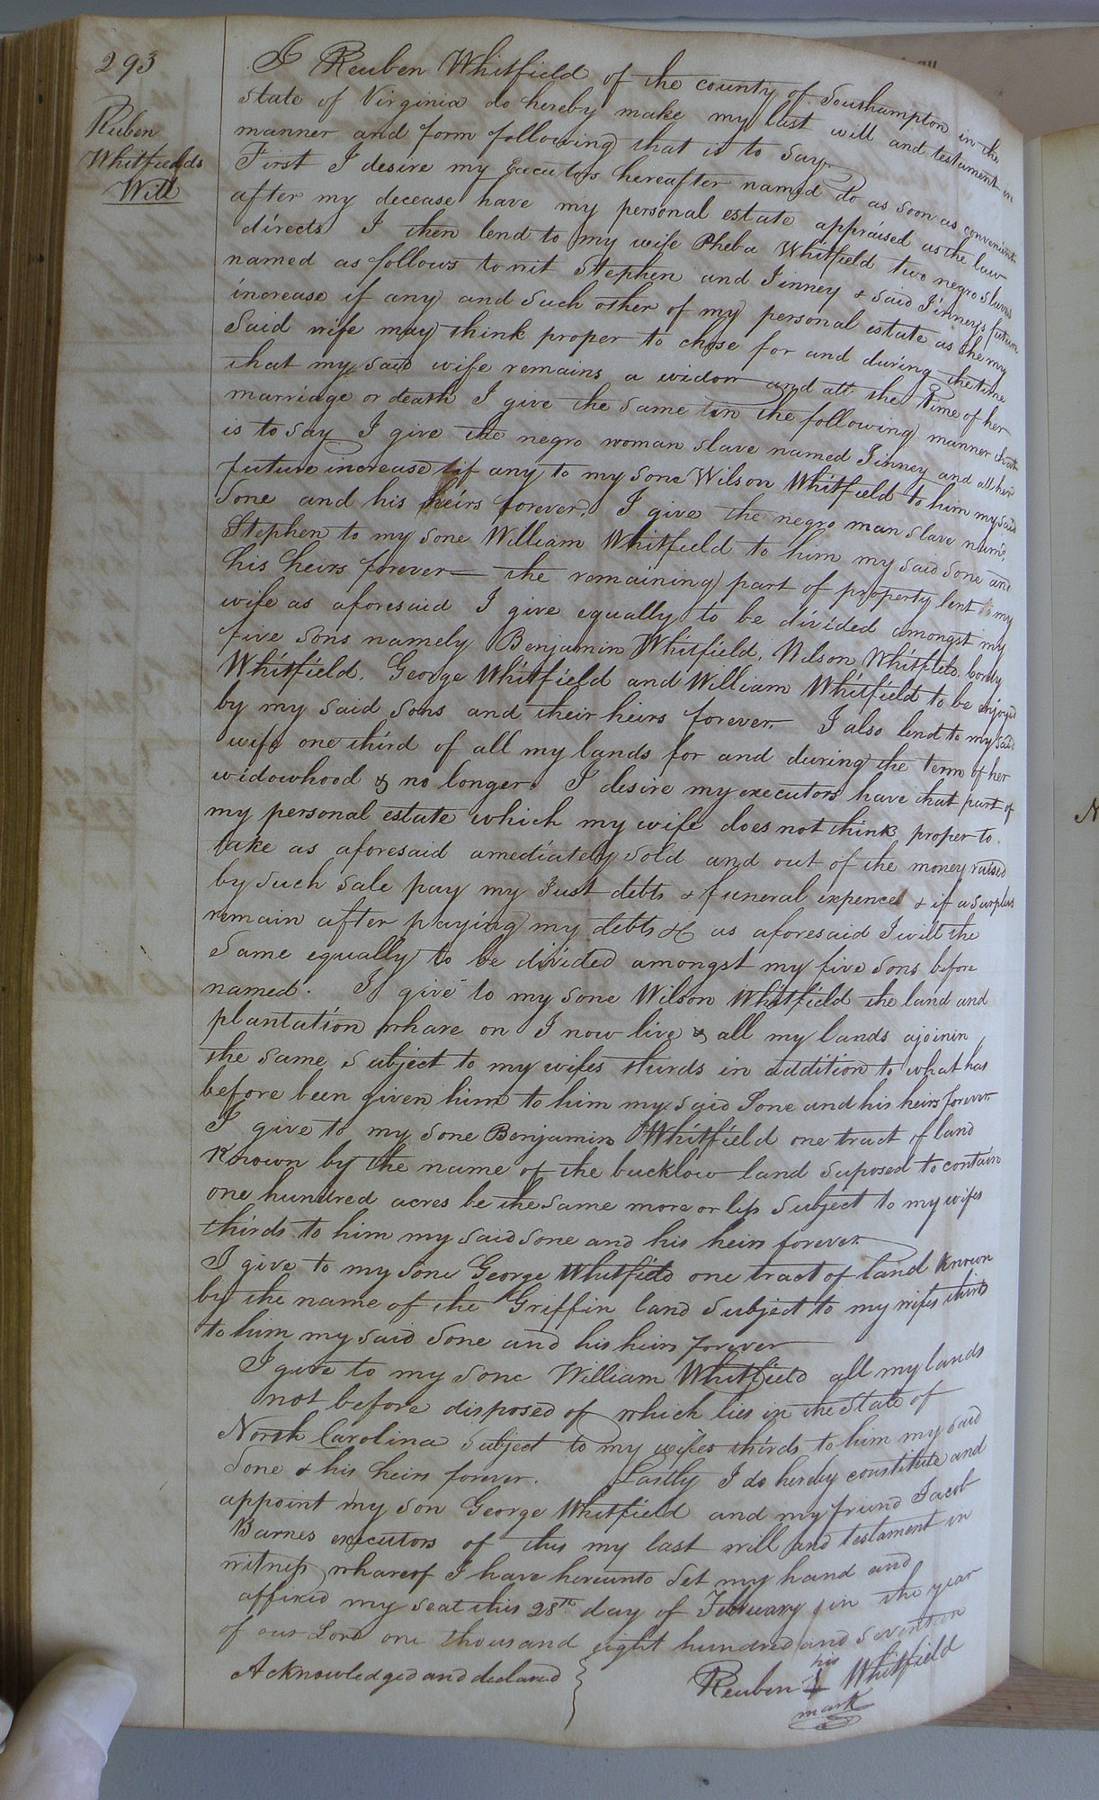 293
Reuben
Whitfields
Will
I Reuben Whitfield of the county of Southampton in the
state of Virginia do hereby make my last will and testament in
manner and form following that is to say.
First I desire my Executors hereafter named do as soon as convenient
after my decease have my personal estate appraised as the law
directs I then lend to my wife Pheba Whitfield two negro slaves
named as follows to wit Stephen and Jinney & said Jinneys future
increase if any and such other of my personal estate as she my
said wife may think proper to chose for and during the time
that my said wife remains a widow and att the time of her
marriage or death I give the same in the following manner that
is to say I give the negro woman slave named Jinney and all her
future increase if any to my sone Wilson Whitfield to him my said
Sone and his heirs forever. I give the negro man slave name
Stephen to my sone William Whitfield to him my said sone and
his heirs forever— the remaining part of property lent to my
wife as aforesaid I give equally to be divided amongst my
five sons namely Benjamin Whitfield, Wilson Whitfield,
Whitfield. George Whitfield and William Whitfield to be enjoyed
by my said sons and their heirs forever. I also lend to my said
wife one third of all my lands for and during the term of her
widowhood & no longer. I desire my executors have that part of
my personal estate which my wife does not think proper to
take as aforesaid amediately sold and out of the money raised
by such sale pay my Just debts & funeral expences & if a surplus
remain after paying my debts &c as aforesaid I will the
same equally to be divided amongst my five sons before
named. I give to my sone Wilson Whitfield the land and
plantation whare on I now live & all my lands ajoinin
the same subject to my wifes thirds in addition to what has
before been given him to him my said Sone and his heirs forever
I give to my sone Benjamin Whitfield one tract of land
Known by the name of the bucklow land suposed to contain
one hundred acres be the same more or less subject to my wifes
thirds to him my said sone and his heirs forever.
I give to my sone George Whitfield one tract of land known
by the name of the Griffin land subject to my wifes thirds
to him my said sone and his heirs forever
I give to my sone William Whitfield all my lands
not before disposed of which lies in the State of
North Carolina subject to my wifes thirds to him my said
Sone & his heirs forever. Lastly I do hereby constitute and
appoint my son George Whitfield and my friend Jacob
Barnes executors of this my last will and testament in
witness whareof I have hereunto set my hand and
affixed my seal this 28th day of February in the year
of our Lord one thousand eight hundred and seventeen
Acknowledged and declared
his
Reuben + Whitfield
mark